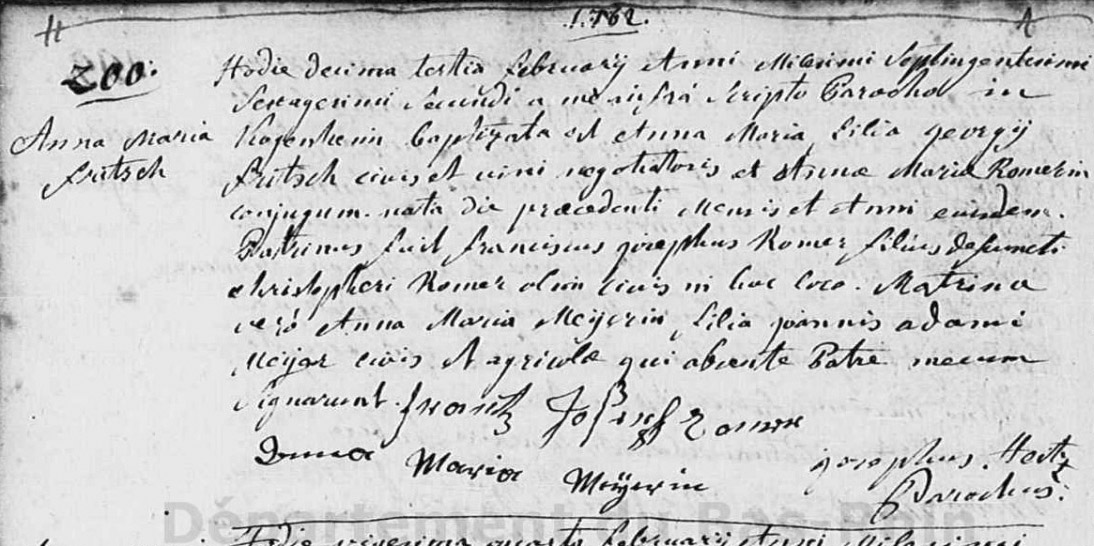 1762.
200.
Anna Maria
fritsch
Hodie decima tertia february Anni Milesimi Septingentesimi
Sexagesimi Secundi a me infra scripto Parocho in
Kogenheim baptizata est Anna Maria filia georgÿ
fritsch civis et vini negotiatoris et Annæ Mariæ Romerin
conjugum. nata die præcedenti Mensis et Anni eiusdem.
Patrinus fuit franciscus josephus Romer filius defuncti
christopheri Romer olim civis in hoc loco. Matrina
veró Anna Maria Meÿerin filia joannis adami
Meÿer civis et agricolæ qui absente Patre mecum
Signarunt. frantz Joseph Romer
Anna Maria Meÿerin
josephus
Parochus.
Département du Bas-Rhin
Hodie vigesima quarta february Anni Milesimi